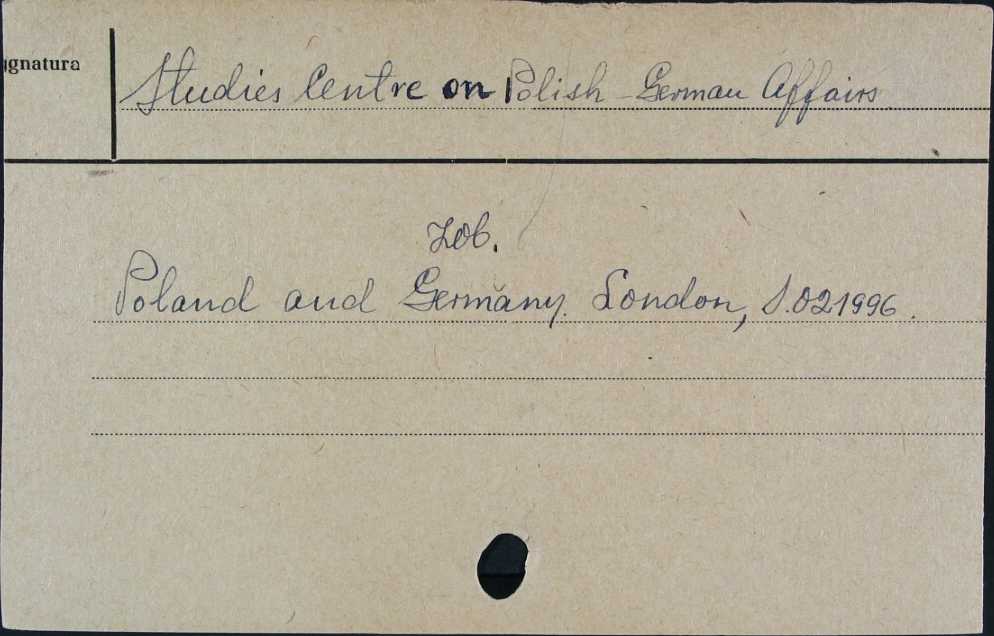 ignatura
Studies Centre on Polish-German Affairs
Zob.
Poland and Germany. London, S.021996.